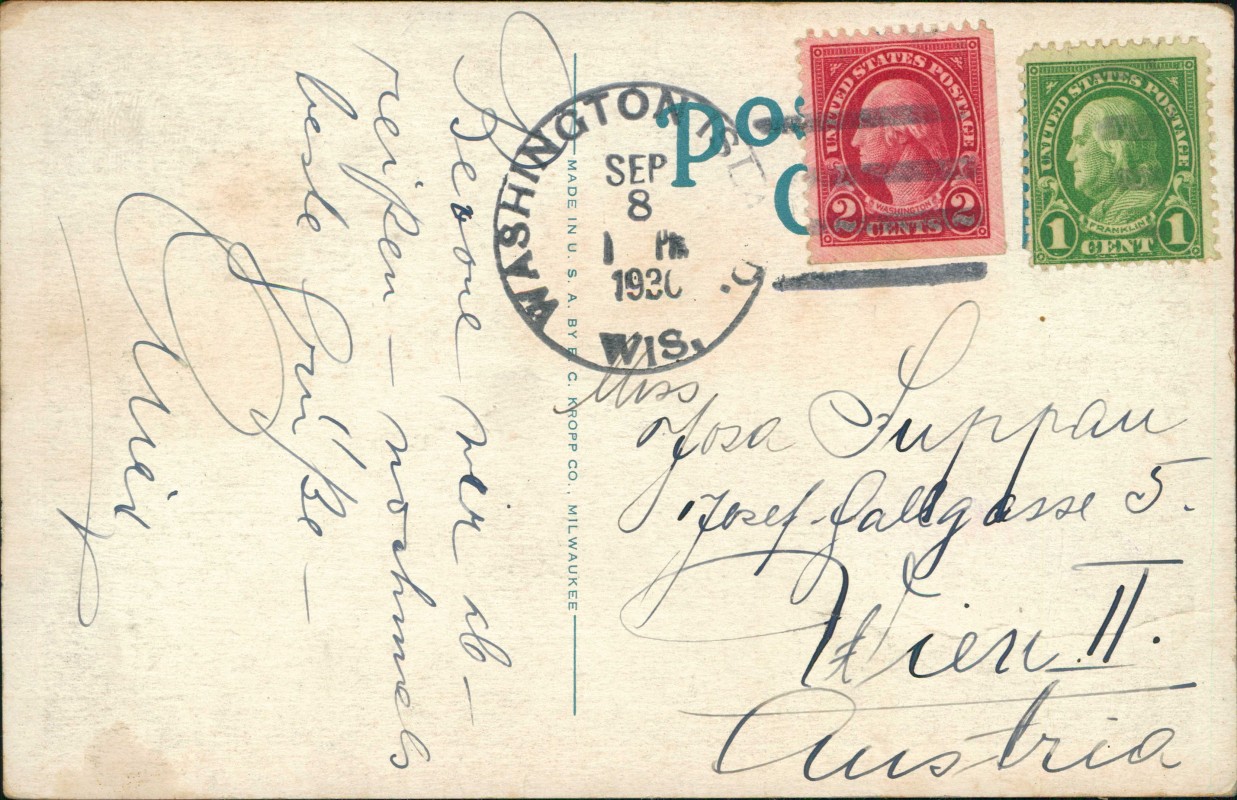 Bevor wir ab-
reißen - nochmals
beste Grüße -
WASHINGTON ISLAND.
SEP
8
1 PM
1930
WIS.
POS
C
UNITED STATES POSTAGE
WASHINGTON
2 CENTS 2
UNITED STATES POSTAGE
FRANKLIN
1 CENT 1
MADE IN U. S. A. BY E. C. KROPP CO., MILWAUKEE
Miss
Josa Suppan
Josef-Gallgasse 5.
Wien II.
Austria